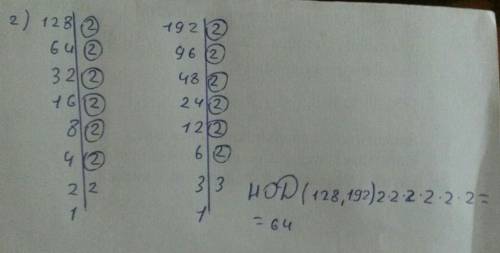 2) 128 | 2 192 | 2
64 | 2 96 | 2
32 | 2 48 | 2
16 | 2 24 | 2
8 | 2 12 | 2
4 | 2 6 | 2
2 | 2 3 | 3
1 1
НОД (128,192) 2·2·2·2·2·2=
= 64